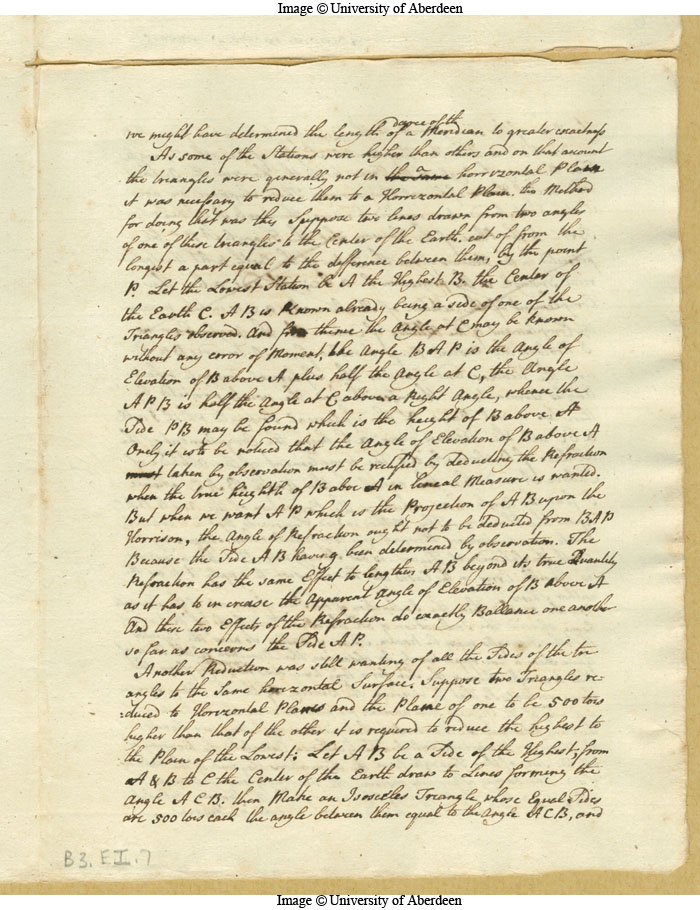 Image © University of Aberdeen
degree of the
we might have determined the length of a Meridian to greater exactness
As some of the Stations were higher than others and on that account
the triangles were generally not in the same a horrizontal Plain
it was necessary to reduce them to a Horrizontal Plain. the Method
for doing that was this Suppose two lines drawn from two angles
of one of these triangles to the Center of the Earth. cut of from the
longest a part equal to the difference between them, by the point
P. Let the Lowest Station be A the Highest B. the Center of
the Earth C. A B is known already being a side of one of the
Triangles observed. And from thence the Angle at C may be known
without any error of Moment. the Angle B A P is the Angle of
Elevation of B above A plus half the Angle at C, the Angle
A P B is half the Angle at C above a Right Angle, whence the
Side P B may be found which is the height of B above A
Onely it is to be noticed that the Angle of Elevation of B above A
must taken by observation must be rectified by deducting the Refraction
when the true heighth of B abov A in lineal Measure is wanted.
But when we want A P which is the Projection of A B upon the
Horrison, the Angle of Refraction ought not to be deducted from B A P
Because the Side A B having been determined by observation. The
Refraction has the same Effect to lengthen A B beyond its true Quantity
as it has to increase the Apparent Angle of Elevation of B above A
And these two Effects of the Refraction do exactly Ballance one another
so far as concerns the Side A P.
Another Reduction was still wanting of all the Sides of the tri
angles to the Same horizontal Surface. Suppose two Triangles re-
:duced to Horizontal Plains and the Plane of one to be 500 tois
higher than that of the other it is required to reduce the highest to
the Plain of the Lowest: Let A B be a Side of the Highest; from
A & B to C the Center of the Earth draw to Lines forming the
Angle A C B. then Make an Isosceles Triangle whose Equal Sides
are 500 tois each the angle between them equal to the Angle A C B, and
B3. EI. 7
Image © University of Aberdeen